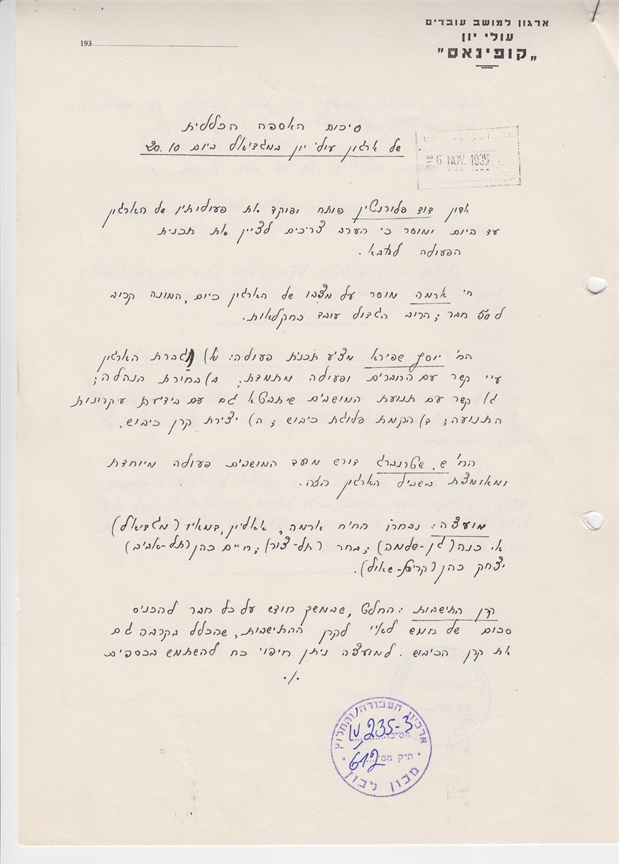 ארגון למושב עובדים
עולי יון
"קופינאס"
193
סיכום האספה הכללית
של ארגון עולי יון במגדיאל ביום 20.10
6 NOV. 1935
אדון דוד פלורנטין פותח ופוקד את פעולותיו של הארגון
עד היום ומוסר כי הערב צריכים לציין את תכנית
הפעולה להבא.
ח' ארמה מוסר על מצבו של הארגון כיום, המונה קרוב
חבר; הרוב הגדול עובד בחקלאות.
הח' יוסף שפירא מציע תכנית פעולה: א) הגברת הארגון
ע"י קשר עם החברים ופעולה מתמדת. ב) בחירת הנהלה;
ג) קשר עם תנועת המושבים שיתבטא גם עם בידיעת עקרונות
התנועה; ד) הקמת פלוגת כיבוש; ה) יצירת קרן כיבוש.
הח' ש. שטרנברג דורש מועד המושבים פעולה מיוחדת
ומאומצת בשביל הארגון הזה.
מועצה: נבחרו הח"ח ארמה, (מגדיאל)
א. כנה (גן-שלמה); (תל-צור); חיים כהן (תל-אביב)
יצחק כהן (קרית-שאול).
קרן התישבות: הוחלט, שבמשך חודש על כל חבר להכניס
סכום של חמש לא"י לקרן ההתישבות, שהכלל בקרבה גם
את קרן הכיבוש. למועצה ניתן חיפוי כח להשתמש בכספים
./.
ארכיון העבודה והחלוץ
חטיבה IV 235-3
תיק מס' 612
מכון לבון